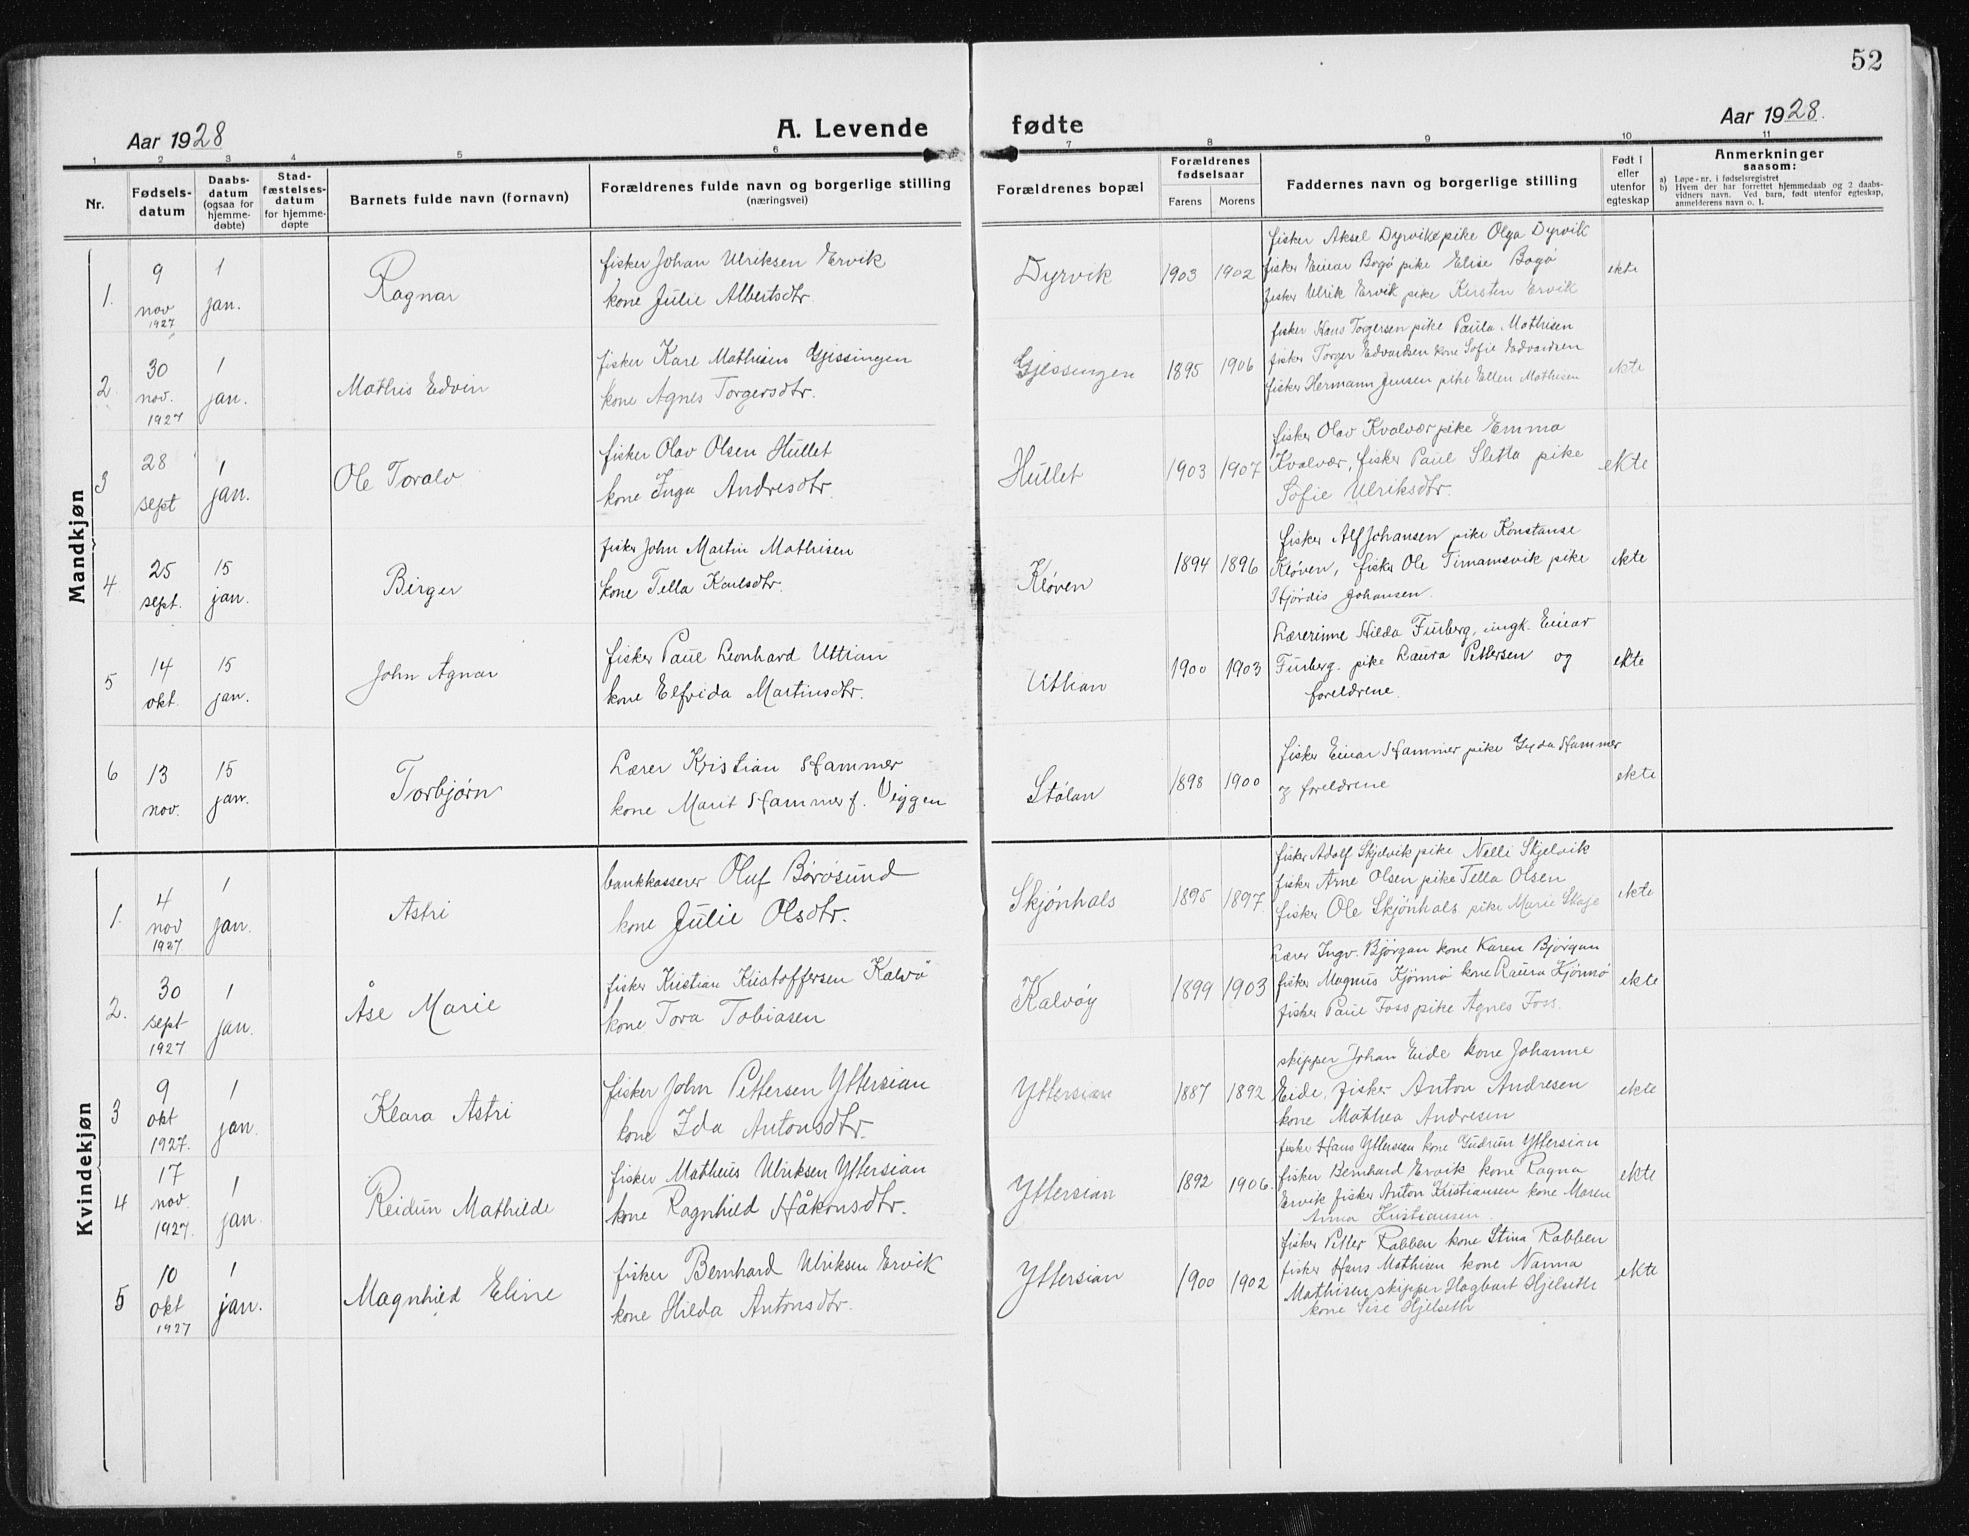 52
Aar 1928
A. Levende fødte
Aar 1928.
1 2 3 4 5 6 7 8 9 10 11
Nr.
Fødsels-
datum
Daabs-
datum
(ogsaa for
hjemme-
døbte)
Stad-
fæstelses-
datum
for hjemme-
døpte
Barnets fulde navn (fornavn)
Forældrenes fulde navn og borgerlige stilling
(næringsvei)
Forældrenes bopæl
Forældrenes
fødselsaar
Farens Morens
Faddernes navn og borgerlige stilling
Født i
eller
utenfor
egteskap
Anmerkninger
saasom:
a) Løpe-nr. i fødselsregistret
b) Hvem der har forrettet hjemmedaab og 2 daabs-
vidners navn. Ved barn, født utenfor egteskap,
anmelderens navn o. l.
Mandkjøn
1.
9
nov
1927
1
jan.
Ragnar
fisker Johan Ulriksen Ervik
kone Julie Albertsdtr.
Dyrvik
1903 1902
fisker Aksel Dyrvik pike Olga Dyrvik
fisker Einar Bogø pike Elise Bogø
fisker Ulrik Ervik pike Kirsten Ervik
ekte
2
30
nov.
1927
1
jan.
Mathis Edvin
fisker Karl Mathisen Gjessingen
kone Agnes Torgersdtr.
Gjessingen
1895 1906
fisker Hans Torgersen pike Paula Mathisen
fisker Torger Edvardsen kone Sofie Edvardsen
fisker Hermann Jensen pike Ellen Mathisen
ekte
3
28
sept
1
jan.
Ole Toralv
fisker Olav Olsen Hullet
kone Inga Andresdtr.
Hullet
1903 1907
fisker Olav Kvalvær pike Emma
Kvalvær, fisker Paul Sletta pike
Sofie Ulriksdtr.
ekte
4
25
sept.
15
jan.
Birger
fisker John Martin Mathisen
kone Tella Karlsdtr.
Kløven
1894 1896
fisker Alf Johansen pike Konstanse
Kløven, fisker Ole Tinnamsvik pike
Hjørdis Johansen.
ekte
5
14
okt.
15
jan.
John Agnar
fisker Paul Leonhard Uttian
kone Elfrida Martinsdtr.
Uttian
1900 1903
Lærerinne Hilda Furberg, ungk. Einar
Furberg. pike Laura Pettersen og
foreldrene.
ekte
6
13
nov.
15
jan.
Torbjørn
Lærer Kristian Hammer
kone Marit Hammer f. Viggen
Stølan
1898 1900
fisker Einar Hammer pike Gyda Hammer
og foreldrene
ekte
Kvindekjøn
1.
4
nov
1927
1
jan.
Astri
bankkasserer Oluf Børøsund
kone Julie Olsdtr.
Skjønhals
1895 1897.
fisker Adolf Skjelvik pike Nelli Skjelvik
fisker Arne Olsen pike Tella Olsen
fisker Ole Skjønhals pike Marie Skaje
ekte
2.
30
sept
1927
1
jan.
Åse Marie
fisker Kristian Kristoffersen Kalvø
kone Tora Tobiasen
Kalvøy
1899 1903
Lærer Ingv. Bjørgan kone Karen Bjørgan
fisker Magnus Kjønnø kone Laura Kjønnø
fisker Paul Foss pike Agnes Foss.
ekte
3
9
okt
1927.
1
jan.
Klara Astri
fisker John Pettersen Yttersian
kone Ida Antonsdtr.
Yttersian
1887 1892
skipper Johan Eide kone Johanne
Eide, fisker Anton Andresen
kone Mathea Andresen
ekte
4
17
nov.
1927.
1
jan.
Reidun Mathilde
fisker Matheus Ulriksen Yttersian
kone Ragnhild Håkonsdtr.
Yttersian
1892 1906.
fisker Hans Yttersian kone Gudrun Yttersian
fisker Bernhard Ervik kone Ragna
Ervik fisker Anton Kristiansen kone Maren
Anna Kristiansen.
ekte
5
10
okt
1927
1
jan.
Magnhild Eline
fisker Bernhard Ulriksen Ervik
kone Hilda Antonsdtr.
Yttersian
1900 1902
fisker Petter Rabben kone Stina Rabben
fisker Hans Mathisen kone Nanna
Mathisen, skipper Hagbart Hjelseth
kone Sise Hjelseth
ekte